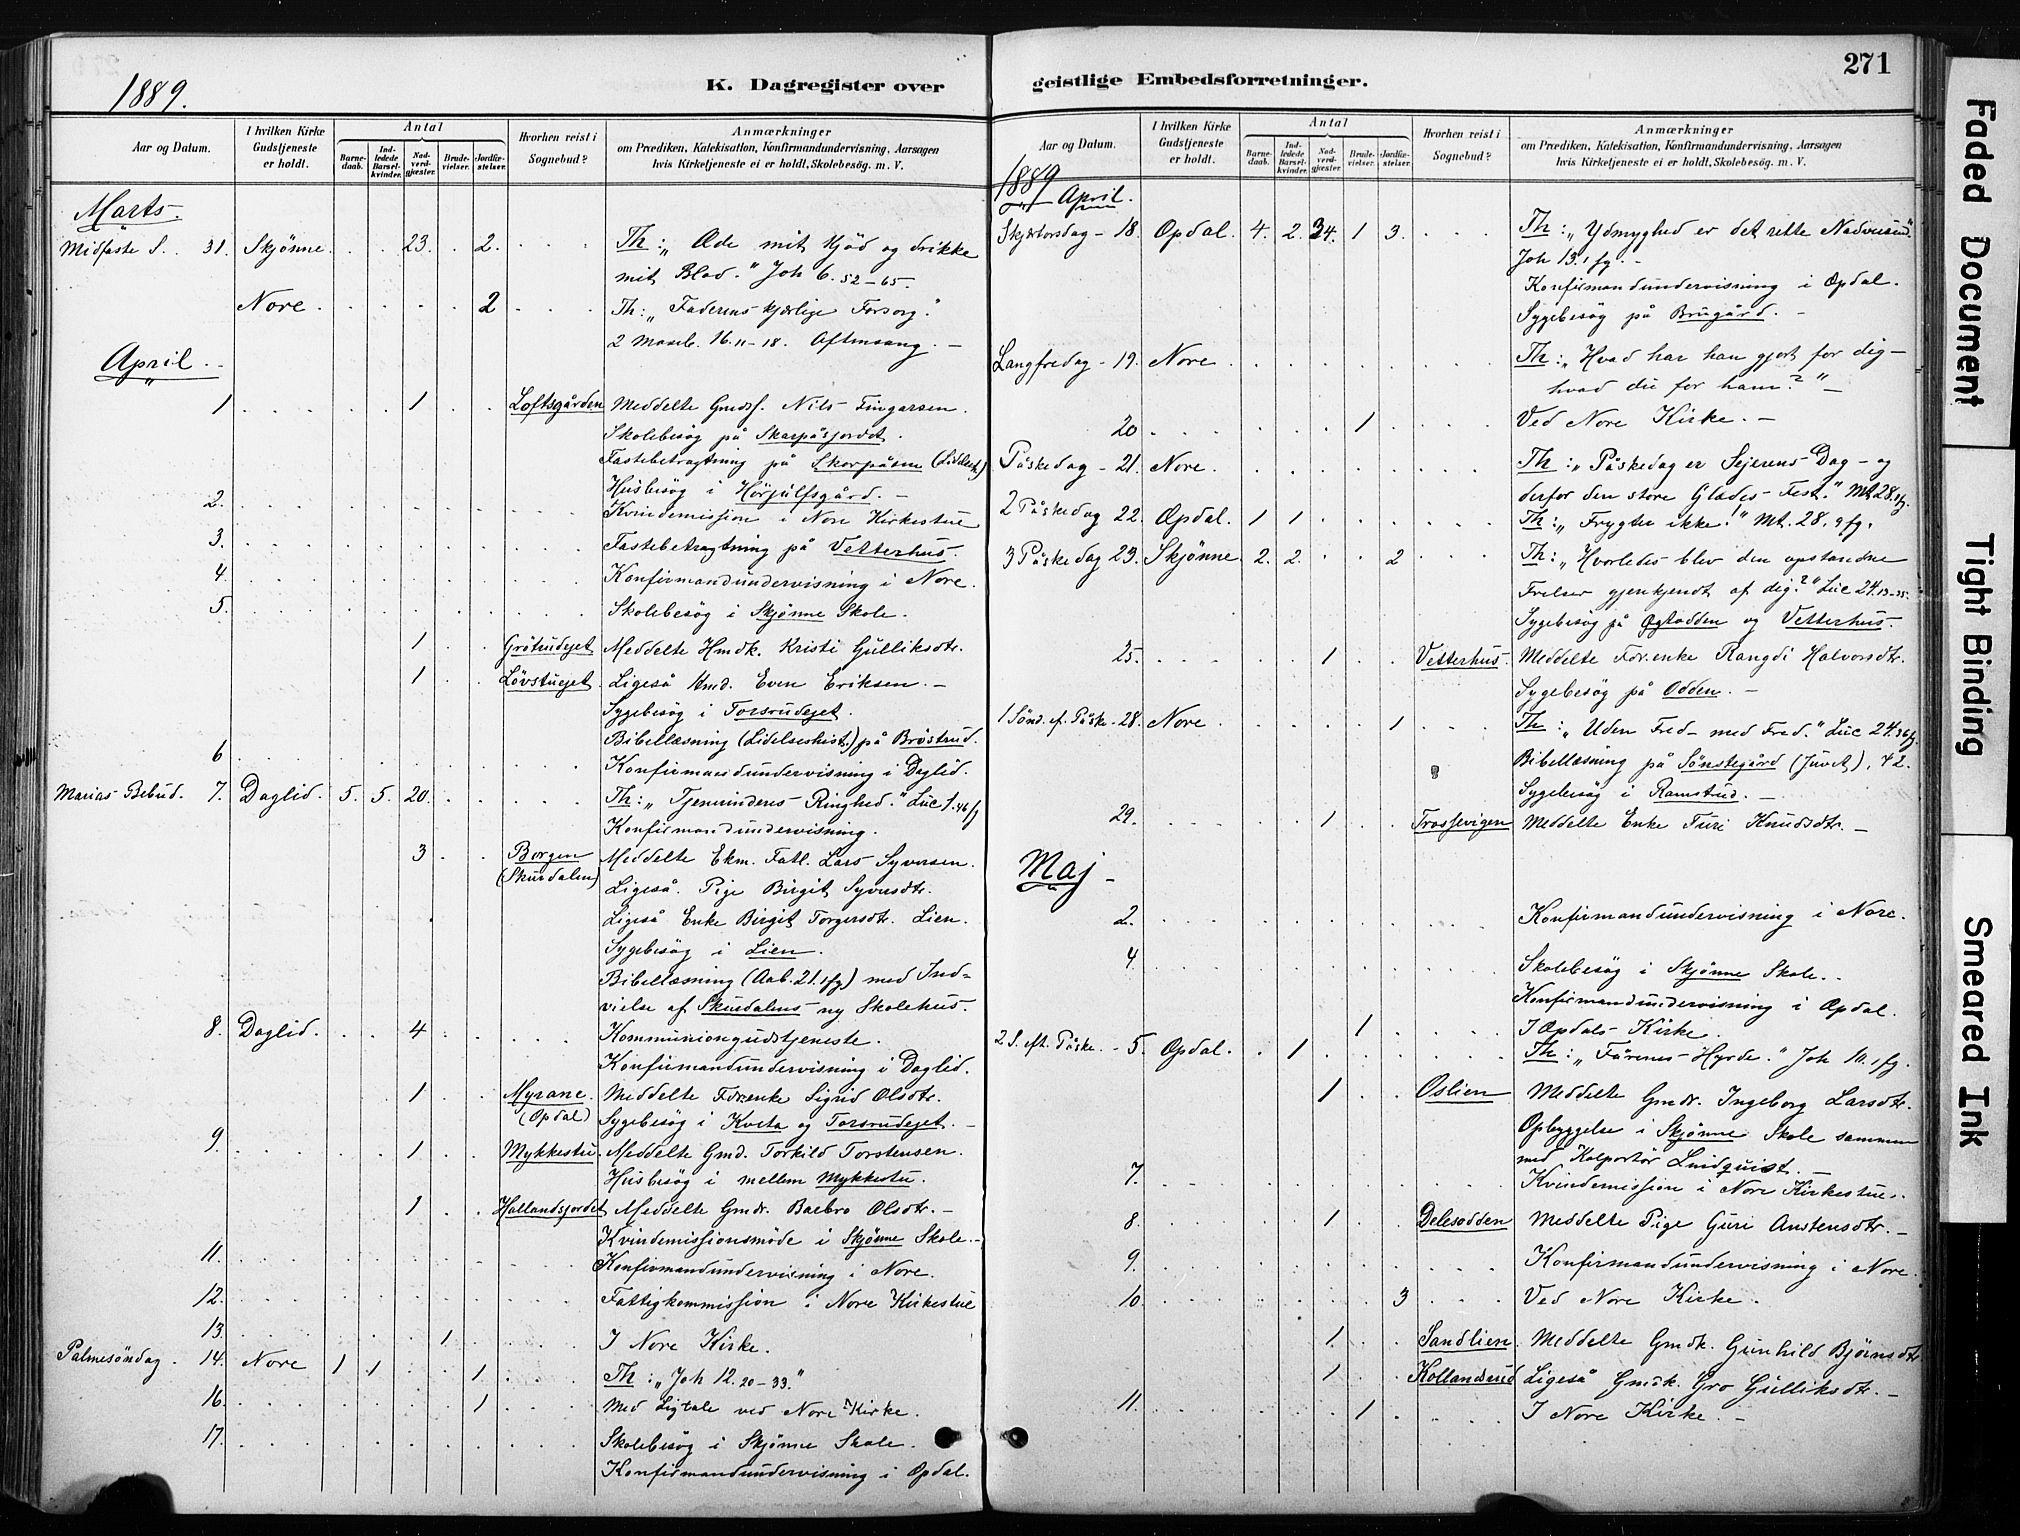 271
1889.
K. Dagregister over
geistlige Embedsforretninger.
Aar og Datum.
I hvilken Kirke Gudstjeneste er holdt.
Antal
Barnedaab.
Indledede Barselkvinder.
Nadverdgjæster.
Brudevielser.
Jordfæstelser.
Hvorhen reist i Sognebud?
Anmærkninger
om Prædiken, Katekisation, Konfirmandundervisning, Aarsagen
hvis Kirketjeneste ei er holdt, Skolebesög. m. V.
Marts.
Midfaste S. 31. Skjønne. . . 23. . 2. . . . Th: „Æde mit Kjöd og drikke
mit Blod." Joh 6. 52-65.
Nore. . . . . 2 . . . Th: „Faderens kjærlige Forsorg."
2 Moseb. 16. 11-18. Aftensang. -
April.
1 . . . . . 1 . . Loftsgården Meddelte Gmdsf. Nils Fingarsen.
Skolebesög på Skarpåsjordet.
Fastebetragtning på Skorpåsen
Husbesög i Hörjulfsgård. -
2. Kvindemission i Nore Kirkestue
3. Fastebetragtning på Vetterhus.
4. Konfirmandundervisning i Nore.
5. Skolebesög i Skjönne Skole.
1 . . Grötrudejet Meddelte Hmdk. Kristi Gulliksdtr.
1 . . Lövstuejet. Ligeså Hmd. Even Eriksen. -
Sygebesög i Torsrudejet.
Bibellæsning (Lidelseshist.) på Bröstrud.
6 Konfirmandundervisning i Daglid.
Marias Bebud. 7. Daglid. 5. 5. 20. . . . . Th: „Tjenerindens Ringhed." Luc 1. 46 fg
Konfirmandundervisning.
3 . . Borgen (Skurdalen) Meddelte Ekm. Fatl. Lars Syversen.
Ligeså. Pige Birgit Syversdtr.
Ligeså Enke Birgit Torgersdtr. Lien.
Sygebesög i Lien.
Bibellæsning (Aab. 21. 1 fg) med Ind-
vielse af Skurdalens ny Skolehus.
8. Daglid. . . 4 . . . . . Kommuniongudstjeneste.
Konfirmandundervisning i Daglid.
1 . . Myrane (Opdal) Meddelte For.enke Sigrid Olsdtr.
Sygebesög i Kvēta og Torsrudejet. -
9. 1 . . Mykkestu. Meddelte Gmd. Torkild Torstensen.
Husbesög i mellem Mykkestu.
1 . . Hallandsjordet Meddelte Gmdk. Barbro Olsdtr. -
Kvindemissionsmöde i Skjönne Skole. -
11. Konfirmandundervisning i Nore.
12. Fattigkommission i Nore Kirkestue
13. 1 . I Nore Kirke.
Palmesöndag. 14. Nore 1 1 . . 1 . . . Th: „Joh 12. 20-33."
16. 1 Med Ligtale ved Nore Kirke.
17. Skolebesög i Skjönne Skole.
Konfirmandundervisning i Opdal.
Aar og Datum.
I hvilken Kirke Gudstjeneste er holdt.
Antal
Barnedaab.
Indledede Barselkvinder.
Nadverdgjæster.
Brudevielser.
Jordfæstelser.
Hvorhen reist i Sognebud?
Anmærkninger
om Prædiken, Katekisation, Konfirmandundervisning, Aarsagen
hvis Kirketjeneste ei er holdt, Skolebesög. m. V.
1889
April.
Skjærtorsdag - 18. Opdal. 4. 2. 34. 1 3. . . . Th: „Ydmyghed er det rette Nadversind."
Joh 13. 1 fg. -
Konfirmandundervisning i Opdal.
Sygebesög på Brugård. -
Langfredag - 19. Nore . . . . . . Th: „Hvad har han gjort for dig -
hvad du for ham?" -
20 . . . . . 1 . Ved Nore Kirke. -
Påskedag - 21. Nore. Th: „Påskedag er Sejerens Dag - og
derfor den store Glædes-Fest." Mt 28. 1 fg.
2 Påskedag 22. Opdal. 1 1 . Th: „Frygter ikke!" Mt. 28. 9 fg.
3 Påskedag 23. Skjönne. 2. 2. . . 2 Th: „Hvorledes blev den opstandne
Frelser gjenkjendt af dig?" Luc 24. 13-35.
Sygebesög på og Vetterhus.
25. 1 . . Vetterhus. Meddelte For.enke Rangdi Halvorsdtr.
Sygebesög på Odden. -
1 Sönd. ef. Påske - 28. Nore . . . . 1 Th: „Uden Fred - med Fred." Luc 24. 36 fg.
Bibellæsning på Sönstegård (Juvet), 42.
Sygebesög i Ramstud. -
29. 1 . . Trossevigen Meddelte Enke Turi Knudsdtr. -
Maj -
2. Konfirmandundervisning i Nore.
4. Skolebesög i Skjönne Skole.
Konfirmandundervisning i Opdal.
1 I Opdals Kirke.
2 S. eft. Påske. - 5. Opdal. . 1 Th: „Fårenes-Hyrde." Joh 10. 1 fg.
1 . . Oslien Meddelte Gmdk. Ingeborg Larsdtr.
Opbyggelse i Skjönne Skole sammen
med Kolportör Lindquist. -
7. Kvindemission i Nore Kirkestue.
8. 1 . . Delesodden Meddelte Pige Guri Anstensdtr. -
9. Konfirmandundervisning i Nore.
10 3 Ved Nore Kirke.
1. . . Sandlien. Meddelte Gmdk. Gunhild Björnsdtr
1 . . Kollandsrud Ligeså Gmdk. Gro Gulliksdtr. -
11. 1 I Nore Kirke. -
Faded Document
Tight Binding
Smeared Ink